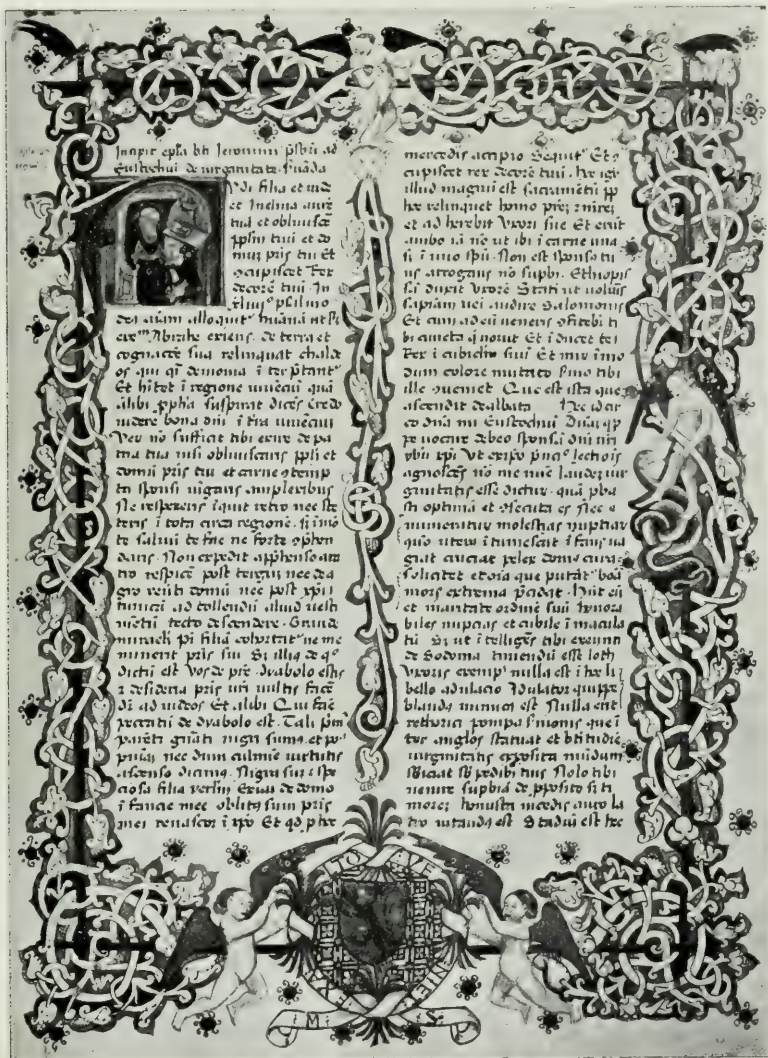 Incipit epl̄a bti Ieronimi p̄sbri ad
Eustochiū de virginitate
Udi filia et vide
et inclina aurē
tuā et obliviscē
pplm tuū et do
mū pris tui Et
cōcupiscet Rex
decorē tuū In
psalmo
deꝰ aīam
Abrahe exiens de terra et
cognacōe sua relinquat chalde
os qui qī demonia
Et hītet ī regione viventiū quā
alibi ppha suspirat dicēs Credo
videre bona dn̄i ī tīra viventiū
Veꝝ nō sufficit tibi exire de pa
tria tua nisi obliviscaris ppli et
domū pris tui et carne ꝯtemp
ta sponsi
Ne respexeris īquit retro nec ste
teris ī tota circa regione. ī mō
te salvū te fac ne forte ꝯphen
daris. Non expedit apphenso ara
tro respicē post tergū nec de a
gro reverti domū nec post xp̄i
tunicā ad tollendū aliud vesti
mētū tecto descendere. Grande
miraclꝫ pr filiā cohortat᷑ ne me
minerit pris sui
dictū est Vos de pre dyabolo estis
ꝛ desideria pris vrī vultis facē
Et alibi Qui fac
peccatū de dyabolo est. Tali pīm
parēti nigri sumꝰ et
nec dum culmine virtutis
ascenso dicimꝰ. Nigra sum ī spe
ciosa filia Exivi de domo
ī fancie mee oblita sum pris
mei renascor ī xpo Et qd p hoc
mercedis accipio Sequit᷑ Et ꝯ
cupiscet rex decorē tuū. hoc igr
illud magnū est sacramētū pp
hoc relinquet homo prez ꝛ mrez
et ad herebit Uxori sue Et erūt
ambo iā nō ut ibi ī carne una
sꝫ ī uno spū. Non est sponsꝰ tu
us arrogans nō supbꝰ. Ethiopis
sā duxit Uxorē Stati ut volueris
sapiam veri audire Salomonis
Et cum ad eū veneris ꝯfitebit ti
bi cuncta q̄ novit Et īducet te
Rex ī cubiclm suū Et
dum colore mutato tibi
ille ꝯveniet Que est ista que
ascendit dealbata
co dn̄a mi Eustochiū
pe vocare debeo sponsā dn̄i
Ut exipo pncº lectiois
agnoscēs nō me nūc laudes vir
ginitatis esse dicturū quā pba
sti optimā et ꝯsecuta es Nec e
numeraturū molestias nuptiaꝝ
quō uterꝰ ītumescat īfans va
giat cruciat pelex domꝰ cura
solicitet et oīa que putāt᷑ boā
mors extrema p̄cidat. hn̄t eī
et maritate ordinē suū honora
biles nupcias et cubile īmacula
tū Sꝫ ut ītelligēs tibi exeunti
de Sodoma timendū esse loth
Uxoris exempl nulla est ī hoc li
bello adulacio Adulator quippe
blandꝰ inimicꝰ est Nulla erit
rethorici pompa sꝰmonis que ī
ter anglos statuat et btitudīe
virginitatis exposita mūdum
sbiciat pedibꝰ tuis Nolo tibi
venire supbiā de ppōsito sꝫ ti
morē. honusta incedis auro la
tro vitandꝰ est Stadiū est hec
AVE
MI